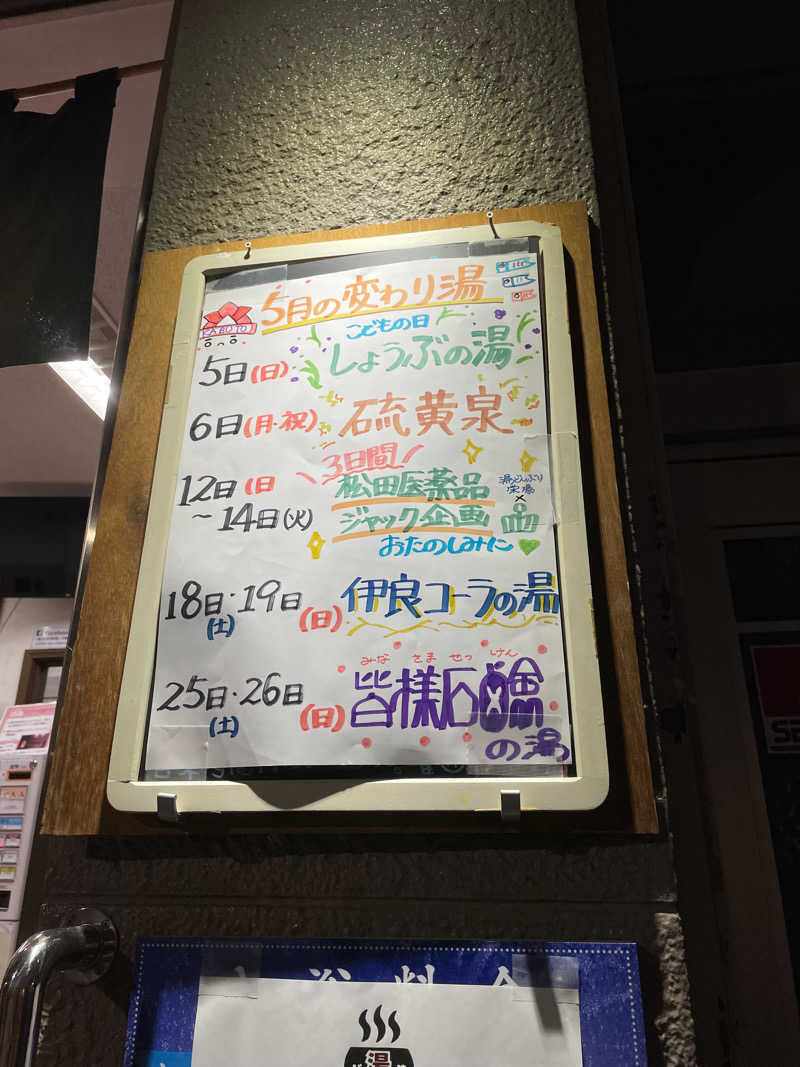 5月の変わり湯
KABUTO
こどもの日
5日(日) しょうぶの湯
6日(月・祝) 硫黄泉
3日間
12日(日) 松田医薬品
~14日(火) ジャック企画
湯どんぶり
栄湯
×
おたのしみに
18日・19日 伊良コーラの湯
(土) (日)
みな さま せっ けん
25日・26日 皆様石鹸
(土) (日) の湯
湯